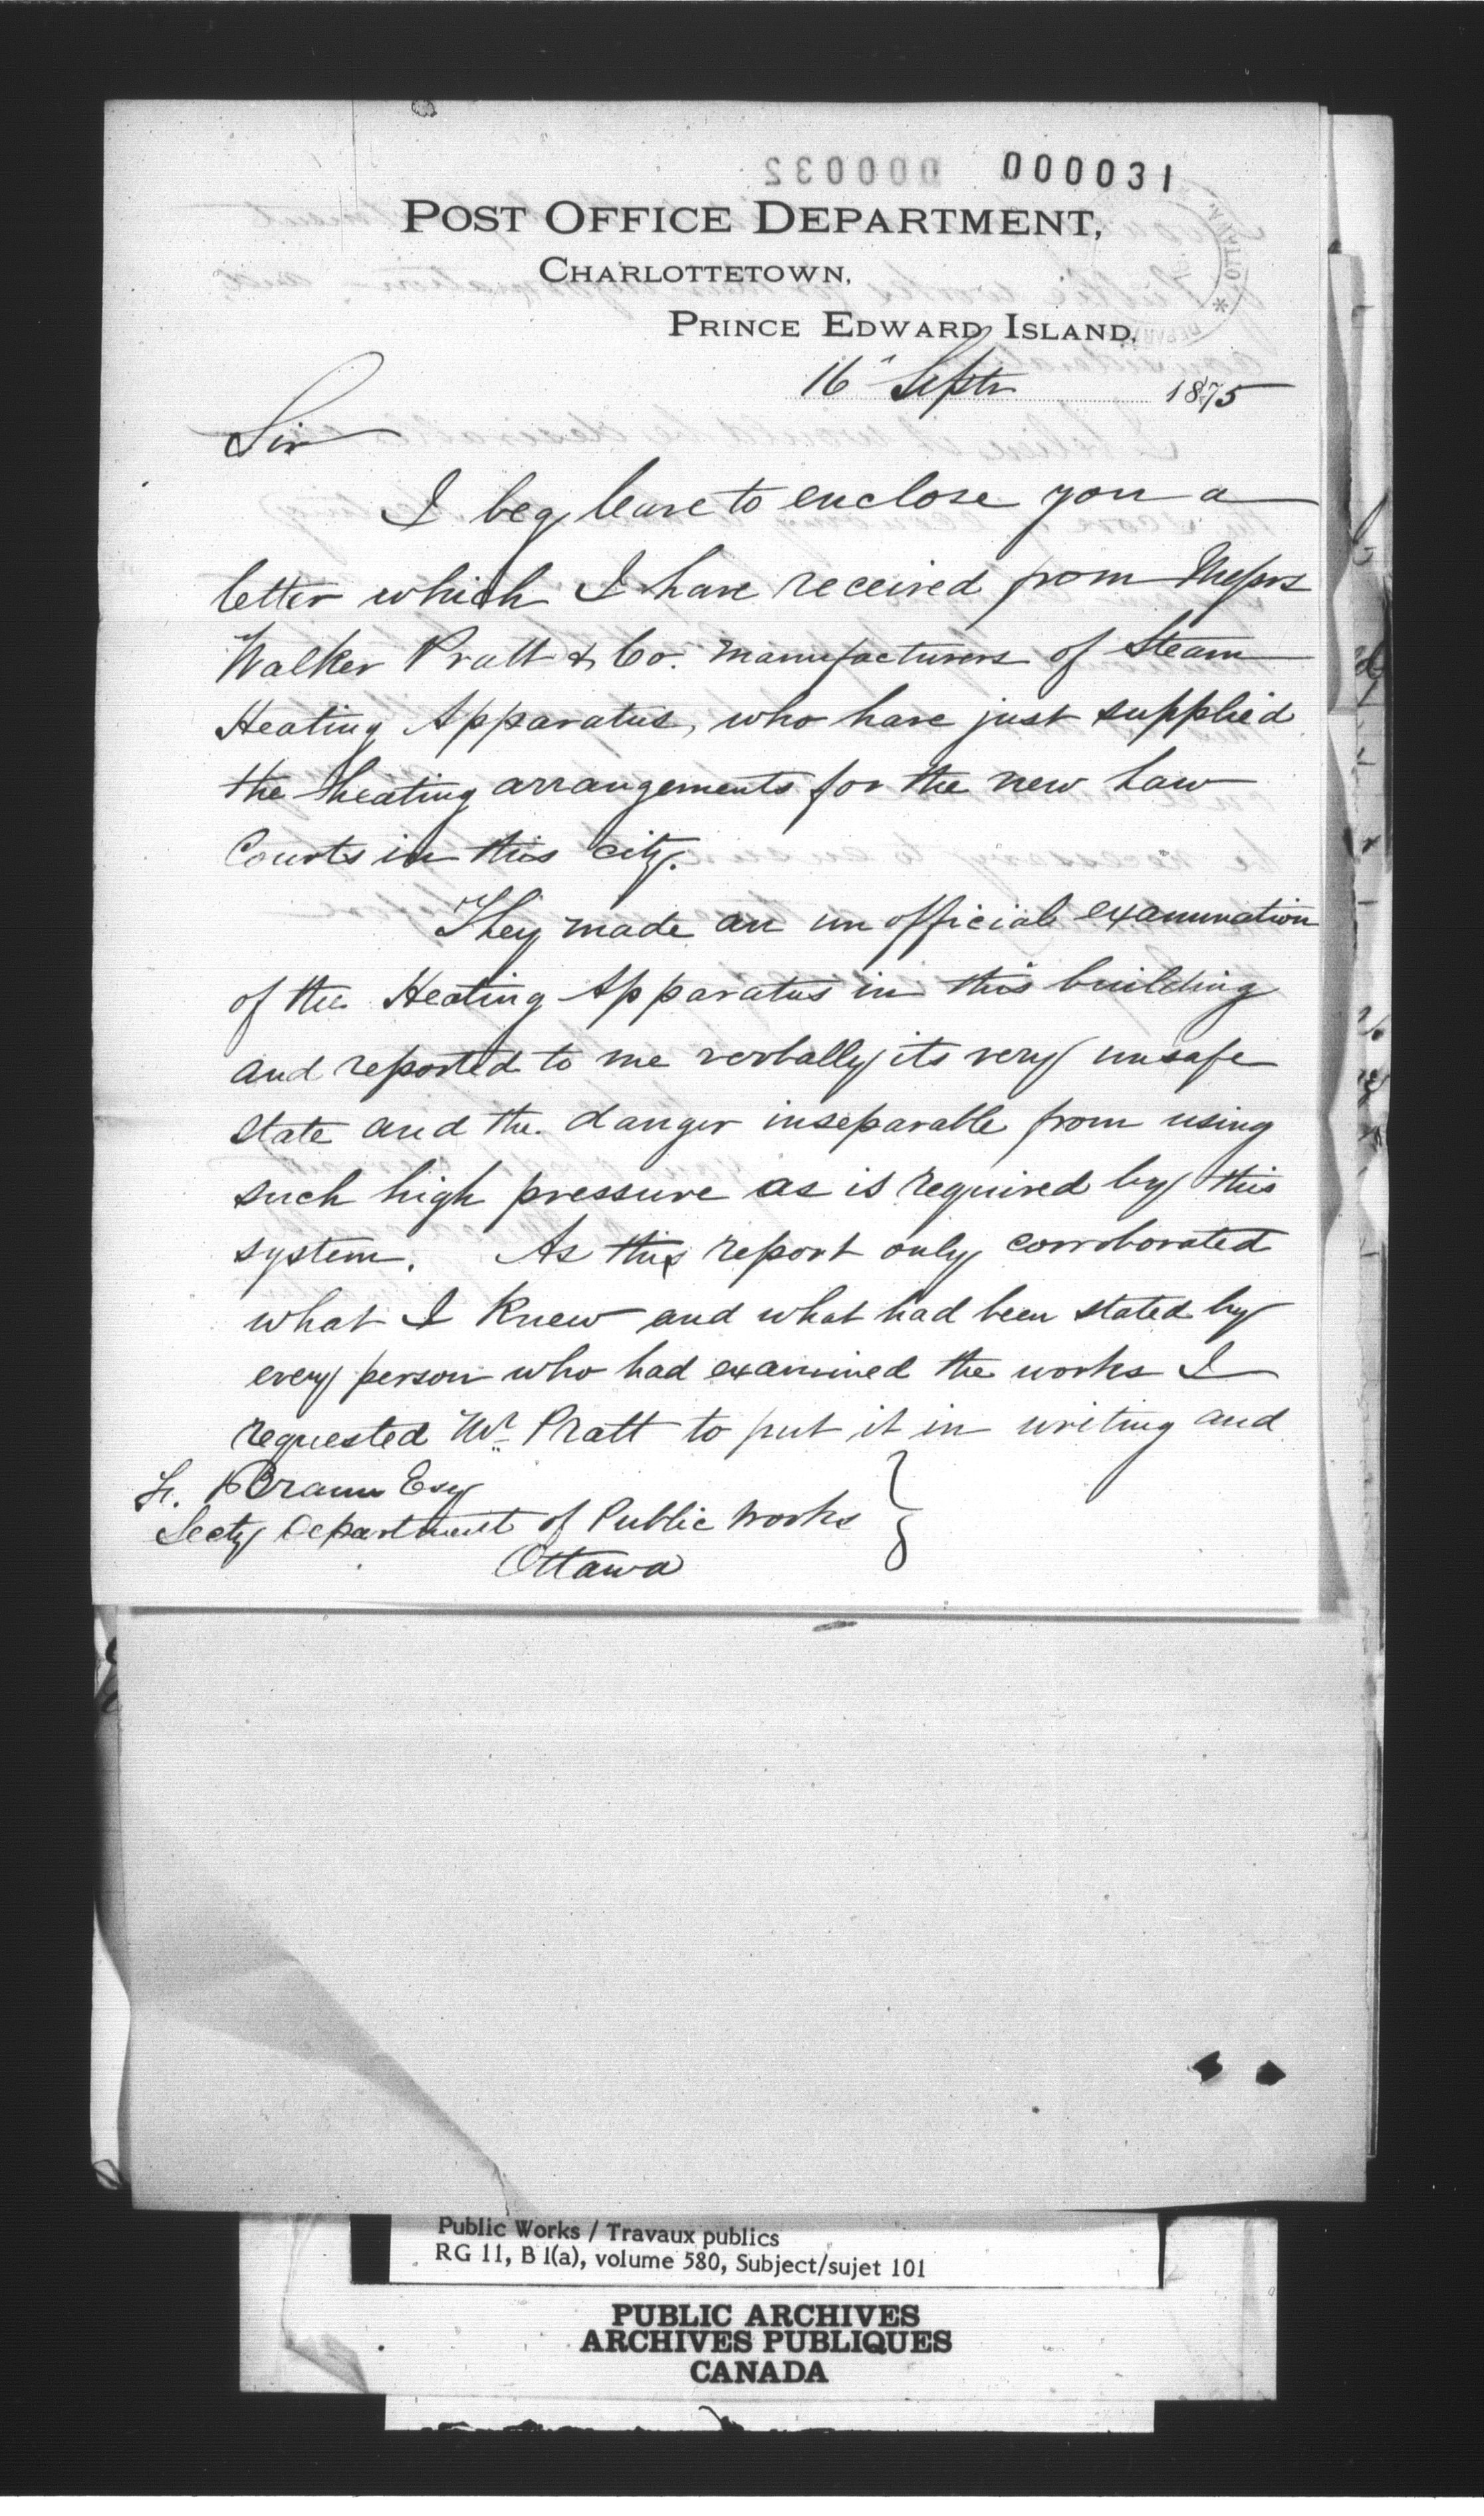 000032 000031
POST OFFICE DEPARTMENT,
CHARLOTTETOWN,
PRINCE EDWARD ISLAND,
16" Septr 1875
Sir
I beg leave to enclose you a
letter which I have received from Messrs
Walker Pratt & Co. manufacturers of Steam
Heating Apparatus, who have just supplied
the heating arrangements for the new Law
Courts in this city.
They made an unofficial examination
of the Heating Apparatus in this building
and reported to me verbally its very unsafe
state and the danger inseparable from using
such high pressure as is required by this
system. As this report only corroborated
what I knew and what had been stated by
every person who had examined the works I
requested Mr. Pratt to put it in writing and
F. Braun Esq
Secty Department of Public Works
Ottawa
Public Works / Travaux publics
RG 11, B 1(a), volume 580, Subject/sujet 101
PUBLIC ARCHIVES
ARCHIVES PUBLIQUES
CANADA